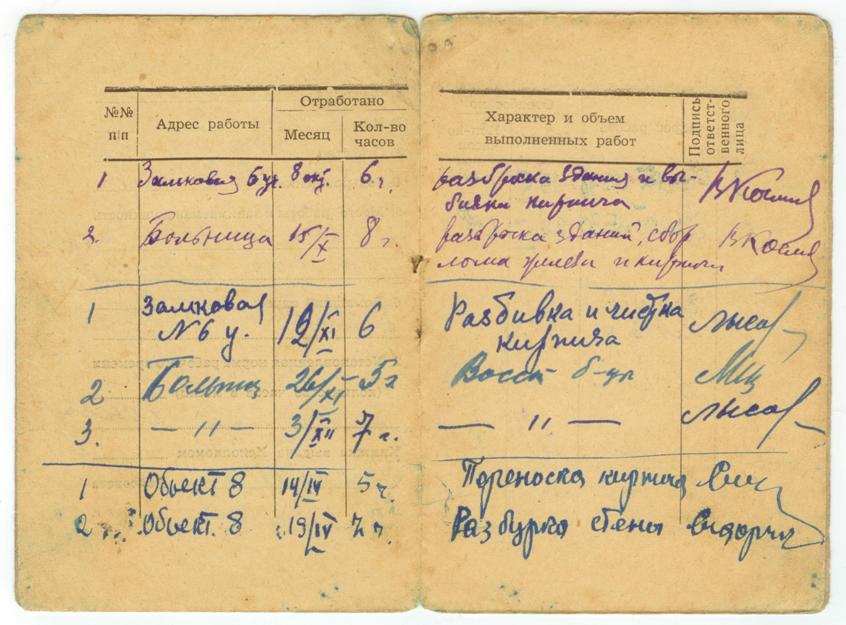 №№ п/п
Адрес работы
Отработано
Месяц
Кол-во часов
Характер и объем выполненных работ
Подпись ответст-венного лица
1 Замковая 6 уч. 8 окт. 6 ч. разброска здания и вы-
бивки кирпича
2. Больница 15/X 8 ч. разброска зданий, сбор
лома и кирпича
1 Замковая
N 6 у. 12/XI 6 Разбивка и чистка
кирпича
2 26/XI 5 ч Восст
3. — " — 3/XII 7 ч. — " —
1 Объект 8 14/IV 5 ч. Переноска кирпича
2 Объект. 8 19/IV 7 ч. Разбурка стены Сидорчу